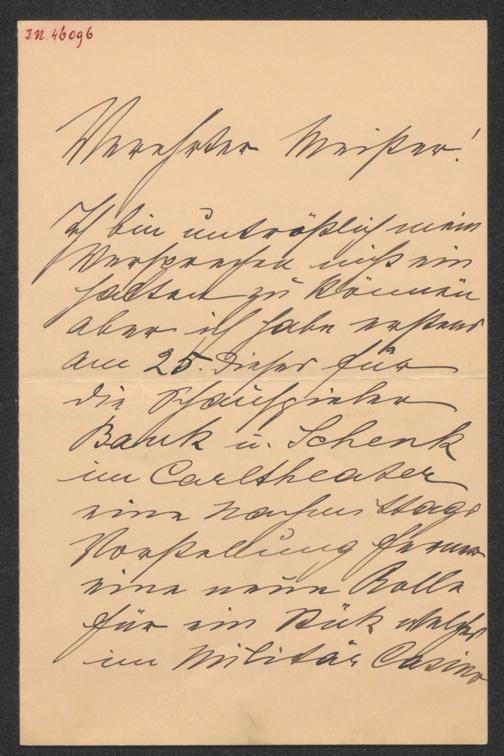 I.N. 46096
Verehrter Meister!
Ich bin untröstlich mein
Versprechen nicht ein
halten zu können
aber ich habe erstens
am 25. dieses für
die Schauspieler
Bank u. Schenk
im Carltheater
eine Nachmittags
Vorstellung ferner
eine neue Rolle
für ein Stük welches
im Militär Casino